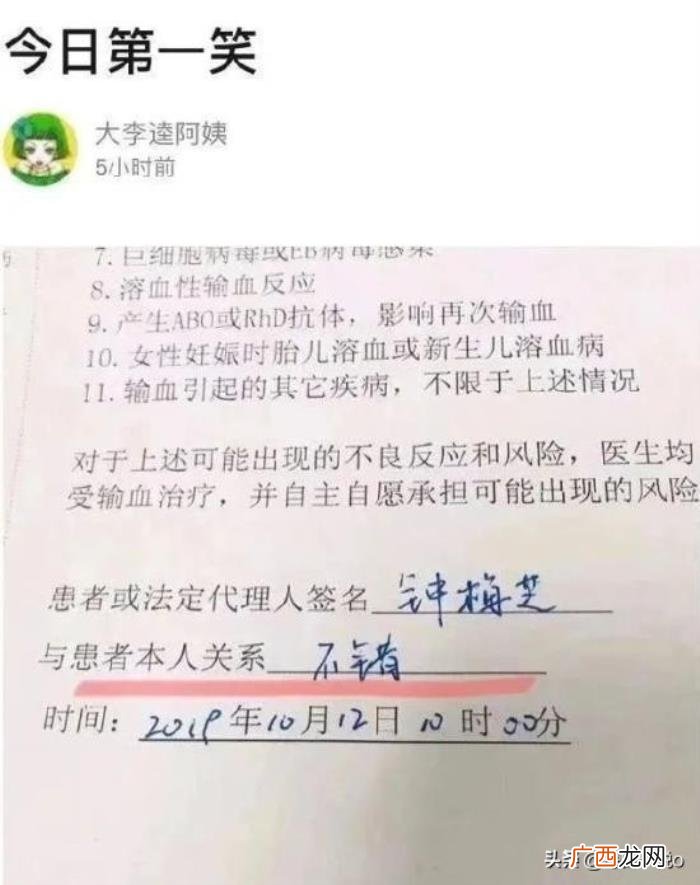 今日第一笑
大李逵阿姨
5小时前
7. 巨细胞病毒或EB病毒感染
8. 溶血性输血反应
9. 产生ABO或RhD抗体，影响再次输血
10. 女性妊娠时胎儿溶血或新生儿溶血病
11. 输血引起的其它疾病，不限于上述情况
对于上述可能出现的不良反应和风险，医生均
受输血治疗，并自主自愿承担可能出现的风险
患者或法定代理人签名 钟梅芝
与患者本人关系 不错
时间：2019年10月12日10时00分
头条@
广西龙网